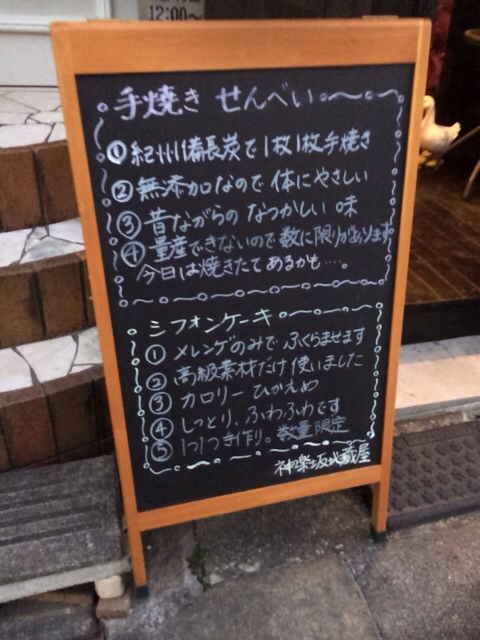 12:00〜
手焼き せんべい
①紀州備長炭で1枚1枚手焼き
②無添加なので体にやさしい
③昔ながらの なつかしい 味
④量産できないので数に限りがあります
今日は焼きたて あるかも….
シフォンケーキ
①メレンゲのみで ふくらませます
②高級素材だけ使いました
③カロリー ひかえめ
④しっとり、ふわふわです
⑤1つ1つ手作り。数量限定
神楽坂地蔵屋